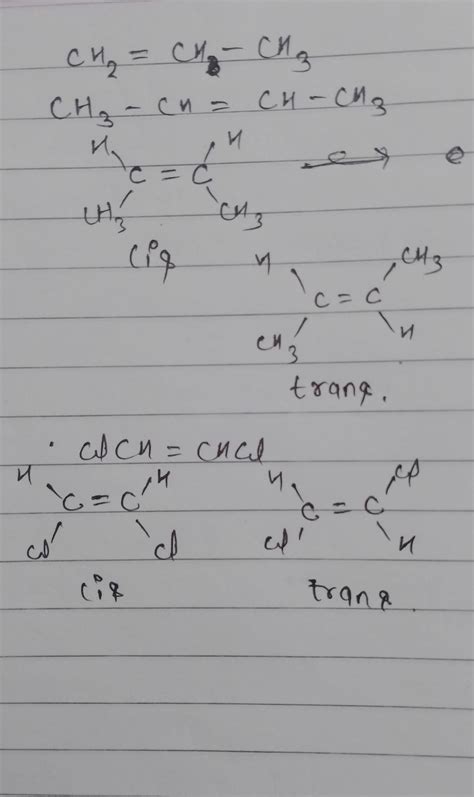 CH2 = CH - CH3
CH3 - CH = CH - CH3
H H
C = C
CH3 CH3
cis
H CH3
C = C
CH3 H
trans.
ClCH = CHCl
H H
C = C
Cl Cl
cis
H Cl
C = C
Cl H
trans.